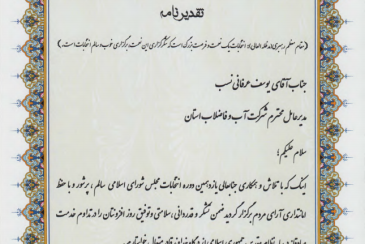 تقدیرنامه
(مقام معظم رهبری مدظله العالی): انتخابات یک نعمت و فرصت بزرگ است که شکرگزاری این نعمت برگزاری خوب و سالم انتخابات است.)
جناب آقای یوسف عرفانی نسب
مدیرعامل محترم شرکت آب و فاضلاب استان
سلام علیکم؛
اینک که با تلاش و همکاری جنابعالی یازدهمین دوره انتخابات مجلس شورای اسلامی سالم ، پرشور و با حفظ
امانتداری آرای مردم برگزار گردید ضمن تشکر و قدردانی، سلامتی و توفیق روز افزونتان را در تداوم خدمت